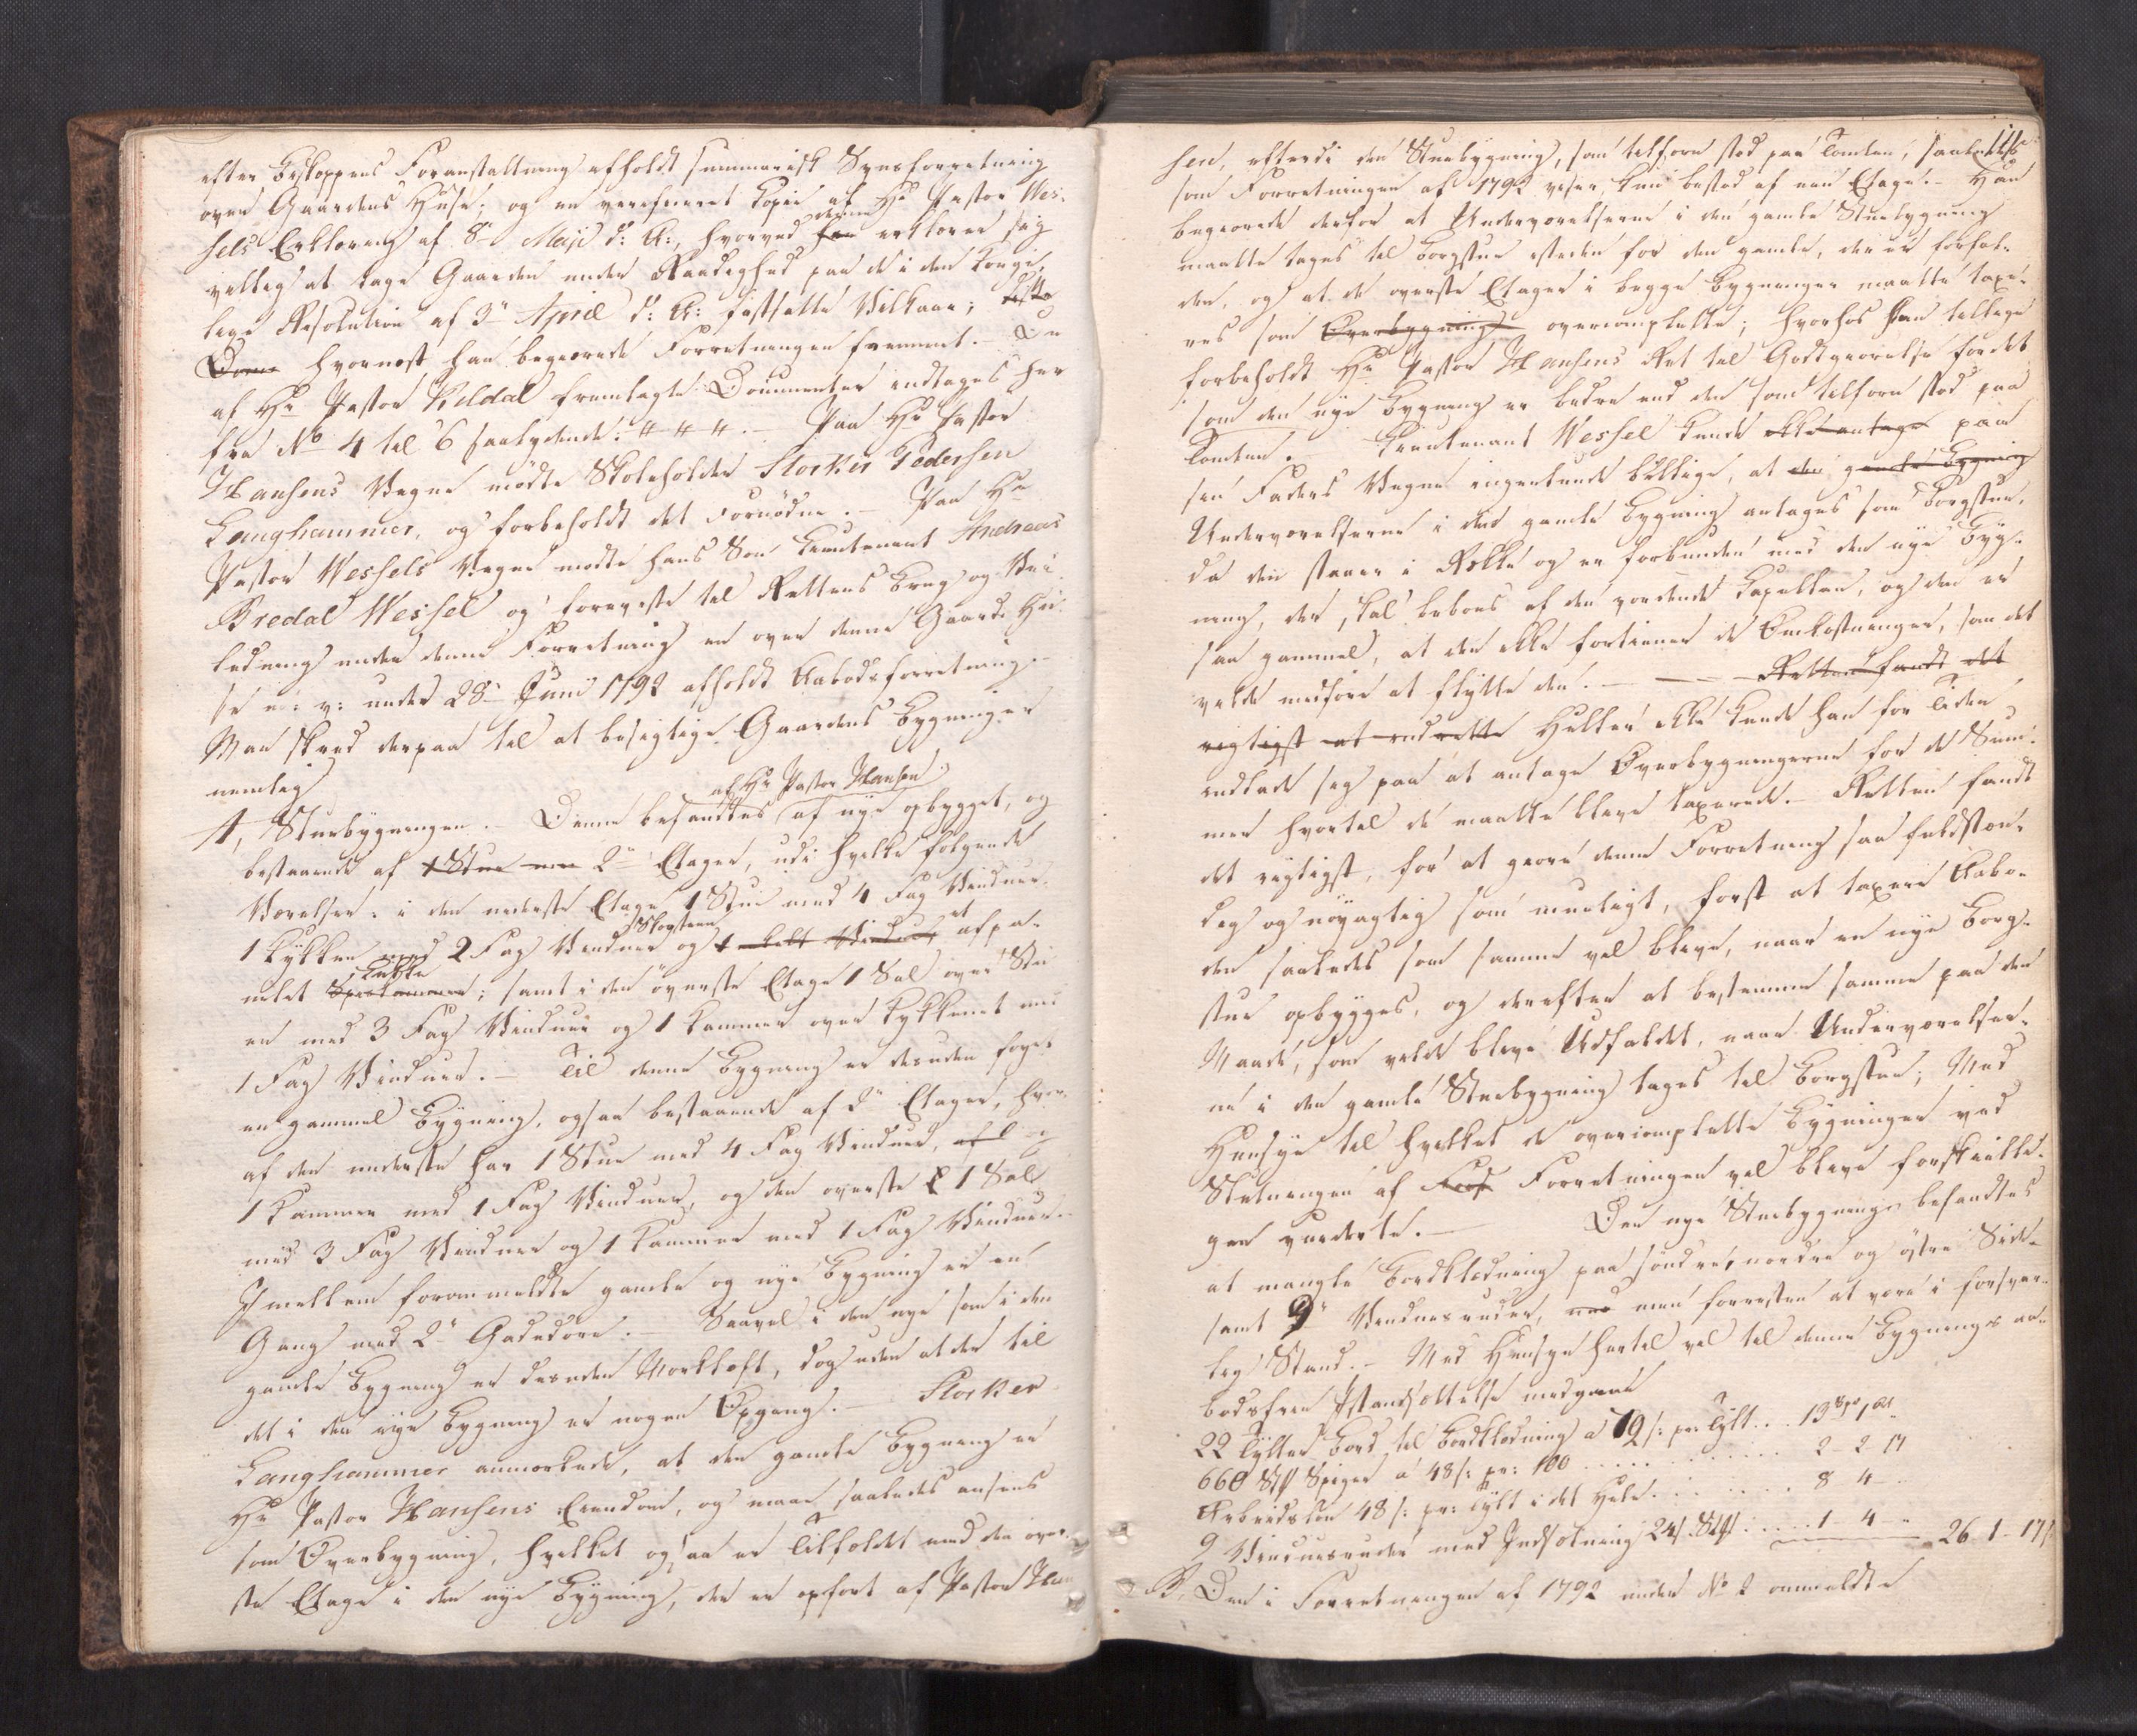 efter Biskoppens Foranstaltning afholdt summarisk Synsforretning
over Gaardens Huse; og en verificeret Kopie af Hr Pastor Wes-
sels Erklæring af 8de Maji d: A:, hvorved denne erklærer sig
villig at tage Gaarden under Raadighed paa de i den konge-
lige Resolution af 3de April d: A: fastsatte Vilkaar;
hvornæst han begjærede Forretningen fremmet. - De
af Hr Pastor Kildal fremlagte Documenter indtages her
fra No 4 til 6 saalydende: " " " . - Paa Hr Pastor
Hansens Vegne mödte Skoleholder Storker Pedersen
Langhammer, og forbeholdt det Fornödne. - Paa Hr
Pastor Wessels Vegne mödte hans Sön Lieutenant Andreas
Bredal Wessel og foreviste til Rettens Brug og Vei-
ledning under denne Forretning en over denne Gaards Hu-
se m: v: under 28de Juni 1792 afholdt Aabodsforretning. -
Man skred derpaa til at besigtige Gaardens Bygninger
nemlig
A, Stuebygningen. - Denne befandtes af Hr Pastor Hansen af nye opbygget, og
bestaaende af 2de Etager, udi hvilke fölgende
Værelser: i den nederste Etage 1 Stue med 4 Fag Vinduer,
1 Kjökken med 2 Fag Vinduer og Skorsteen et afpa-
nelet Kulle; samt i den överste Etage 1 Sal over Stu-
en med 3 Fag Vinduer og 1 Kammer over Kjökkenet med
1 Fag Vinduer. - Til denne Bygning er desuden föiet
en gammel Bygning, ogsaa bestaaende af 2de Etager, hvor-
af den underste har 1 Stue med 4 Fag Vinduer,
1 Kammer med 1 Fag Vinduer, og den överste 1 Sal
med 3 Fag Vinduer og 1 Kammer med 1 Fag Vinduer. -
Imellem forommeldte gamle og nye Bygning er en
Gang med 2de Gadedöre. - Saavel i den nye som i den
gamle Bygning er desuden Mörkloft, dog uden at der til
det i den nye Bygning er nogen Opgang. - Storker
Langhammer anmærkede, at den gamle Bygning er
Hr Pastor Hansens Eiendom, og maae saaledes ansees
som Overbygning, hvilket ogsaa er Tilfældet med den över-
ste Etage i den nye Bygning, der er opfört af Pastor Han-
sen, efterdi den Stuebygning, som tilforn stod paa Tomten, saaledes
som Forretningen af 1792 viser, kun bestod af een Etage. - Han
begjærede derfor at Underværelserne i den gamle Stuebygning
maatte tages til Borgstue isteden for den gamle, der er forfal-
den, og at de överste Etager i begge Bygninger maatte taxe-
res som Overbygning overcomplette; hvorhos han tillige
forbeholdt Hr Pastor Hansens Ret til Godtgjörelse fordet
som den nye Bygning er bedre end den som tilforn stod paa
Tomten. - Lieutenant Wessel kunde ikke antage paa
sin Faders Vegne ingenlunde billige, at den gamle Bygning
Underværelserne i den gamle Bygning antages som Borgstue,
da den staaer i Række og er forbunden med den nye Byg-
ning, der skal beboes af den vordende Capellan, og den er
saa gammel, at den ikke fortiener de Omkostninger, som det
vilde medföre at flytte den. - - - Retten fandt det
rigtigst at indrette Heller ikke kunde han for Tiden
indlade sig paa at antage Overbygningerne for de Sum-
mer hvortil de maatte blive taxerede. - Retten fandt
det rigtigst, for at gjöre denne Forretning saa fuldstæn-
dig og nöyagtig som mueligt, först at taxere Aabo-
den saaledes som samme vil blive, naar en nye Borg-
stue opbygges, og derefter at bestemme samme paa den
Maade, som vilde blive Udfaldet, naar Underværelser-
ne i den gamle Stuebygning tages til Borgstue; Med
Hensyn til hvilket de overcomplette Bygninger ved
Slutningen af Forretningen vil blive forskiellì-
gen vurderte. - Den nye Stuebygning befandtes
at mangle Bordklædning paa söndre, nordre og östre Side
samt 9 Vinduesruder, men forresten at være i forsvar-
lig Stand. - Med Hensyn hertil vil til denne Bygnings aa-
bodsfrie Istandsættelse medgaae
22 Tylter Bord til Bordklædning a 72 s: pr: Tylt . . . 13 Spd 1 Ort
660 Stk Spiger a 48 s: pr: 100 . . . . . . . . . . 2 - 2 17
Arbeidslön 48 s: pr: Tylt i det Hele . . . . . . 8 4 -
9 Vinduesruder med Indsætning 24 s. Stk . . . . . 1 - 4 - " 26 - 1 - 17 s
B, Den i Forretningen af 1792 under No 2 ommeldte